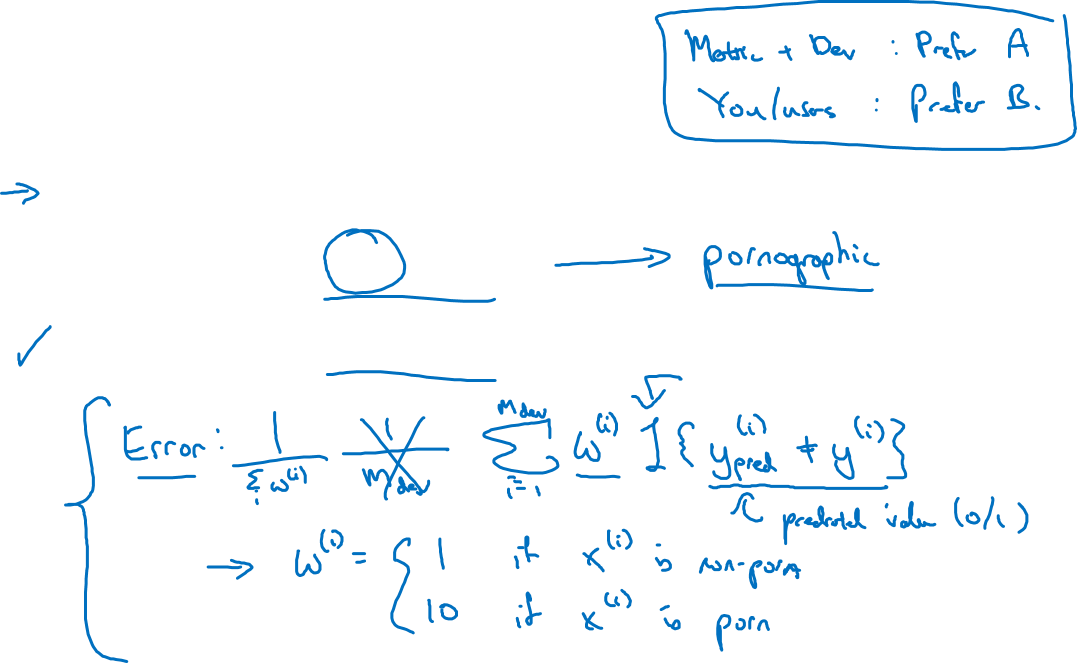 Metric + Dev : Prefer A
You/users : Prefer B.
→
→ pornographic
✓
Error: 1/∑ᵢ w⁽ⁱ⁾ 1/m_dev ∑ᵢ₌₁^(m_dev) w⁽ⁱ⁾ I { y_pred⁽ⁱ⁾ ≠ y⁽ⁱ⁾ }
predicted value (0/1)
→ w⁽ⁱ⁾ = { 1 if x⁽ⁱ⁾ is non-porn
10 if x⁽ⁱ⁾ is porn